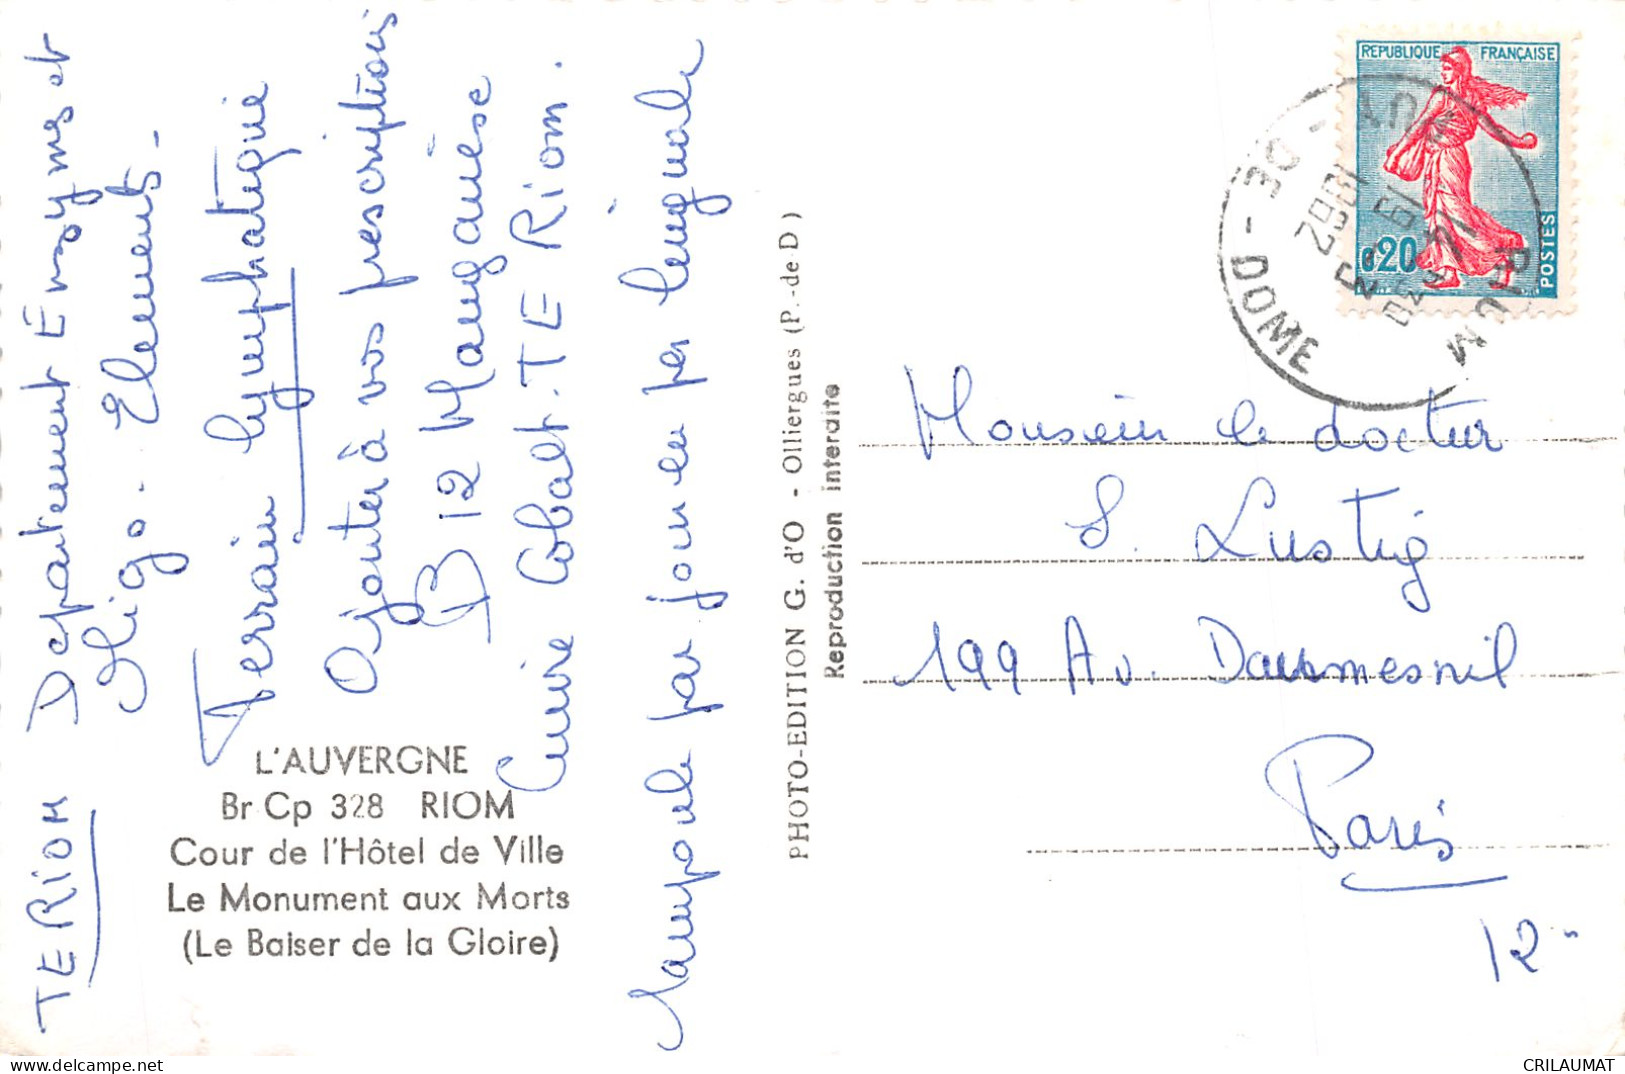 TERIOM Departement Enzymes et
Oligo. Elements-
Terrain lymphatique
Ajouter à vos prescriptions
B 12 Manganèse
Cuivre Cobalt. TERIOM.
1 ampoule par jour en perlinguale
L'AUVERGNE
Br Cp 328 RIOM
Cour de l'Hôtel de Ville
Le Monument aux Morts
(Le Baiser de la Gloire)
PHOTO-EDITION G. d'O - Olliergues (P.-de-D)
Reproduction interdite
REPUBLIQUE FRANÇAISE
0,20
POSTES
RIOM
DE - DOME
1962
Monsieur le docteur
S. Lustig
199 Av. Daumesnil
Paris
12"
CRILAUMAT